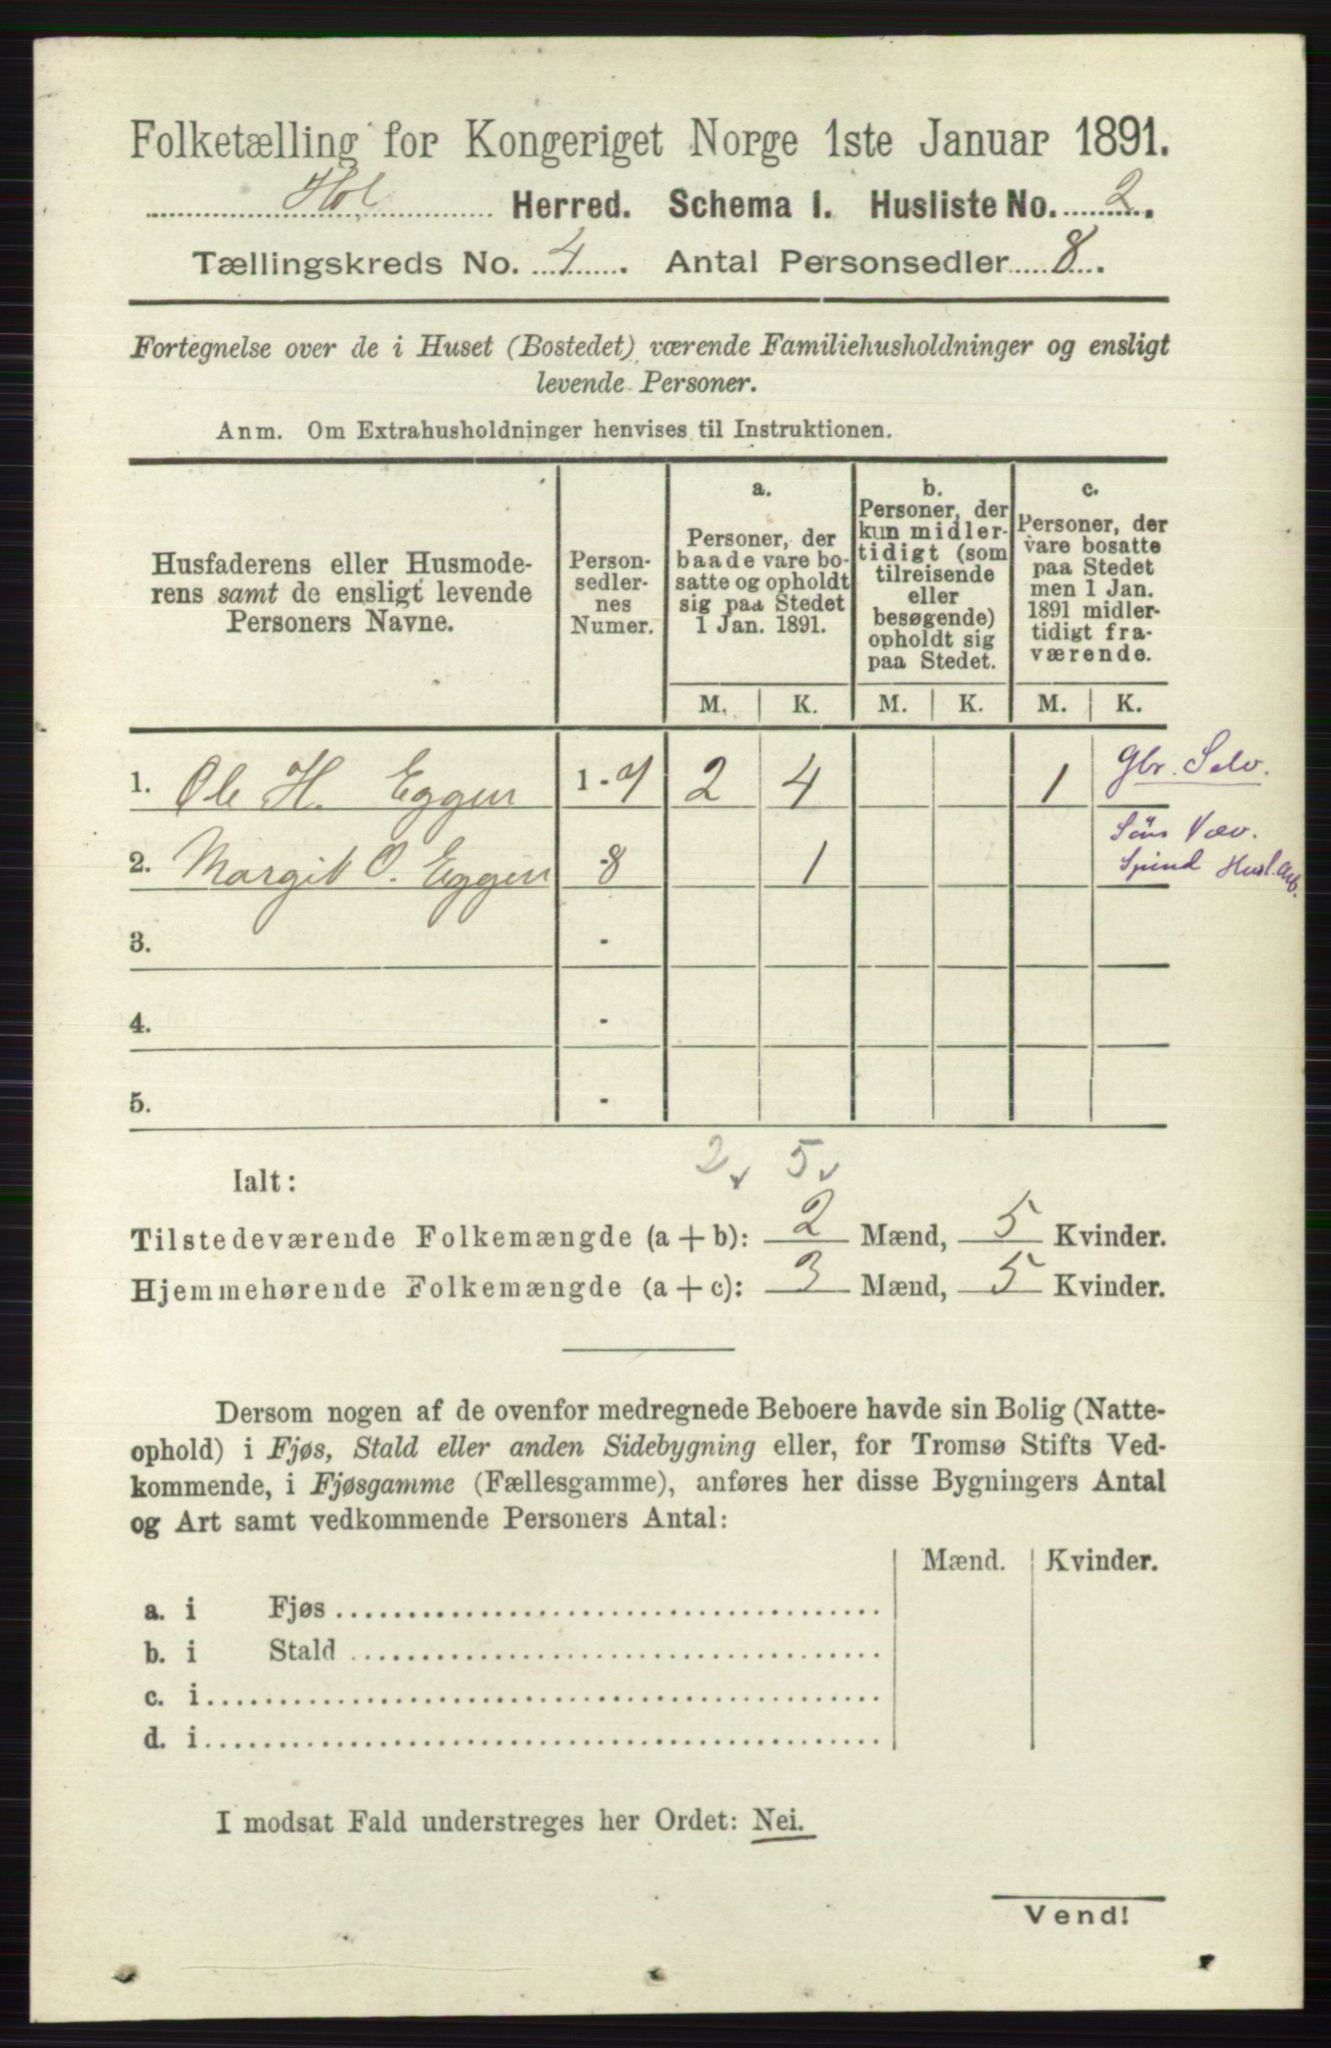 Folketælling for Kongeriget Norge 1ste Januar 1891.
Hol Herred. Schema I. Husliste No. 2.
Tællingskreds No. 4. Antal Personsedler 8.
Fortegnelse over de i Huset (Bostedet) værende Familiehusholdninger og ensligt
levende Personer.
Anm. Om Extrahusholdninger henvises til Instruktionen.
Husfaderens eller Husmode-
rens samt de ensligt levende
Personers Navne.
Person-
sedler-
nes
Numer.
a.
Personer, der
baade vare bo-
satte og opholdt
sig paa Stedet
1 Jan. 1891.
b.
Personer, der
kun midler-
tidigt (som
tilreisende
eller
besøgende)
opholdt sig
paa Stedet.
c.
Personer, der
vare bosatte
paa Stedet
men 1 Jan.
1891 midler-
tidigt fra-
værende.
M. K. M. K. M. K.
1. Ole H. Eggen 1-7 2 4 1 Gbr. Selv.
2. Margit O. Eggen -8 1 Söns Væv.
Spind Husl. Arb.
3. -
4. -
5. -
2 5
Ialt:
Tilstedeværende Folkemængde (a + b): 2 Mænd, 5 Kvinder.
Hjemmehørende Folkemængde (a + c): 3 Mænd, 5 Kvinder.
Dersom nogen af de ovenfor medregnede Beboere havde sin Bolig (Natte-
ophold) i Fjøs, Stald eller anden Sidebygning eller, for Tromsø Stifts Ved-
kommende, i Fjøsgamme (Fællesgamme), anføres her disse Bygningers Antal
og Art samt vedkommende Personers Antal:
Mænd. Kvinder.
a. i Fjøs
b. i Stald
c. i
d. i
I modsat Fald understreges her Ordet: Nei.
Vend!